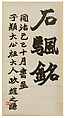 石驅銘
同治己巳十月書应
子穎大公祖大人政 趙之謙